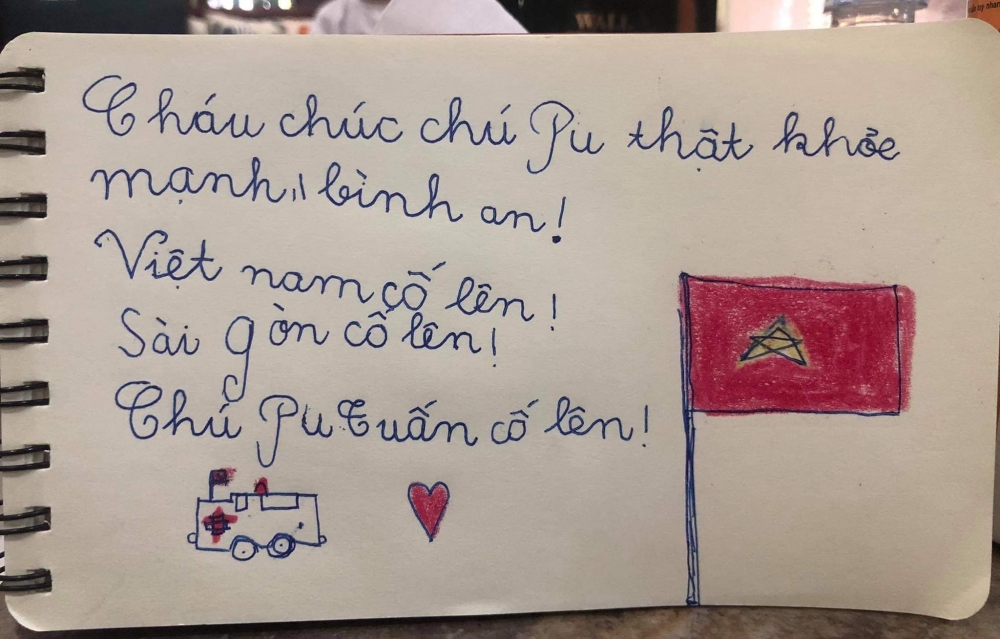 Cháu chúc chú Pu thật khỏe
mạnh, bình an!
Việt nam cố lên!
Sài gòn cố lên!
Chú Pu Tuấn cố lên!
WALL